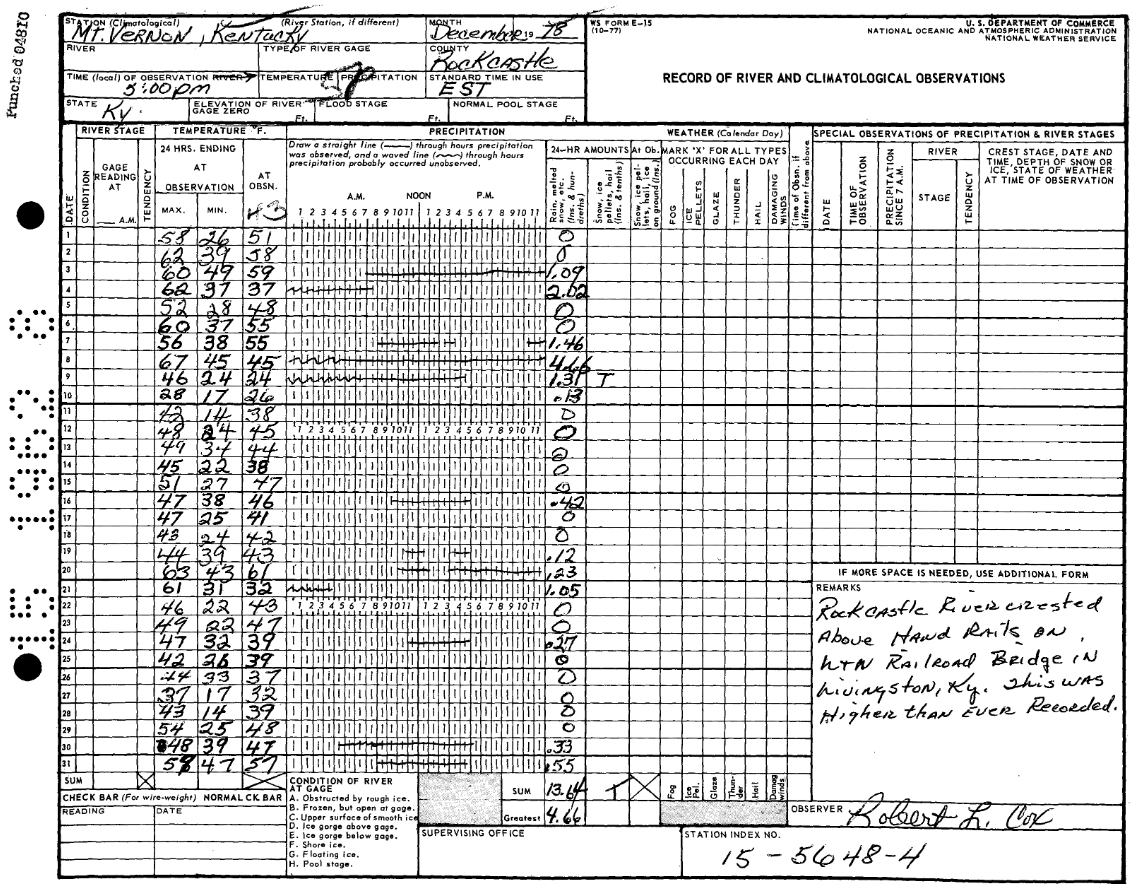 Punched 04810
STATION (Climatological) (River Station, if different) MONTH WS FORM E-15 U. S. DEPARTMENT OF COMMERCE
Mt. Vernon, Kentucky December 19 78 (10-77) NATIONAL OCEANIC AND ATMOSPHERIC ADMINISTRATION
NATIONAL WEATHER SERVICE
RIVER TYPE OF RIVER GAGE COUNTY
Rockcastle
RECORD OF RIVER AND CLIMATOLOGICAL OBSERVATIONS
TIME (local) OF OBSERVATION RIVER TEMPERATURE PRECIPITATION STANDARD TIME IN USE
5:00 pm EST
STATE ELEVATION OF RIVER GAGE ZERO FLOOD STAGE NORMAL POOL STAGE
Ky. Ft. Ft. Ft.
RIVER STAGE TEMPERATURE °F. PRECIPITATION WEATHER (Calendar Day) SPECIAL OBSERVATIONS OF PRECIPITATION & RIVER STAGES
DATE CONDITION GAGE READING AT A.M. TENDENCY
24 HRS. ENDING AT OBSERVATION MAX. MIN. AT OBSN.
Draw a straight line (——) through hours precipitation was observed, and a waved line (~~~) through hours precipitation probably occurred unobserved.
A.M. NOON P.M.
1 2 3 4 5 6 7 8 9 10 11 1 2 3 4 5 6 7 8 9 10 11
24-HR AMOUNTS At Ob.
Rain, melted snow, etc. (Ins. & hundredths)
Snow, ice pellets, hail (Ins. & tenths)
Snow, ice pellets, hail, ice on ground (Ins.)
MARK 'X' FOR ALL TYPES OCCURRING EACH DAY
FOG ICE PELLETS GLAZE THUNDER HAIL DAMAGING WINDS
Time of Obsn. if different from above
DATE TIME OF OBSERVATION PRECIPITATION SINCE 7 A.M. RIVER STAGE TENDENCY
CREST STAGE, DATE AND TIME, DEPTH OF SNOW OR ICE, STATE OF WEATHER AT TIME OF OBSERVATION
1 58 26 51 0
2 62 39 58 0
3 60 49 59 1.09
4 62 37 37 2.02
5 52 28 48 0
6 60 37 55 0
7 56 38 55 1.46
8 67 45 45 4.66
9 46 24 24 1.31 T
10 28 17 26 .13
11 42 14 38 0
12 48 24 45 1 2 3 4 5 6 7 8 9 10 11 1 2 3 4 5 6 7 8 9 10 11 0
13 49 34 44 0
14 45 22 38 0
15 51 27 47 0
16 47 38 46 .42
17 47 25 41 0
18 43 24 42 0
19 44 39 43 .12
20 63 43 61 .23
21 61 31 32 1.05
22 46 22 43 1 2 3 4 5 6 7 8 9 10 11 1 2 3 4 5 6 7 8 9 10 11 0
23 49 22 47 0
24 47 32 39 .27
25 42 26 39 0
26 44 33 37 0
27 37 17 32 0
28 43 14 39 0
29 54 25 48 0
30 48 39 47 .33
31 58 47 57 .55
IF MORE SPACE IS NEEDED, USE ADDITIONAL FORM
REMARKS
Rockcastle River crested
Above Hand Rails on
L+N Railroad Bridge in
Livingston, Ky. This was
Higher than Ever Recorded.
SUM SUM 13.64 T Fog Ice Pel. Glaze Thunder Hail Damag winds
CHECK BAR (For wire-weight) NORMAL CK BAR
READING DATE
CONDITION OF RIVER AT GAGE
A. Obstructed by rough ice.
B. Frozen, but open at gage.
C. Upper surface of smooth ice
D. Ice gorge above gage.
E. Ice gorge below gage.
F. Shore ice.
G. Floating ice.
H. Pool stage.
Greatest 4.66
OBSERVER Robert L. Cox
SUPERVISING OFFICE STATION INDEX NO.
15-5648-4